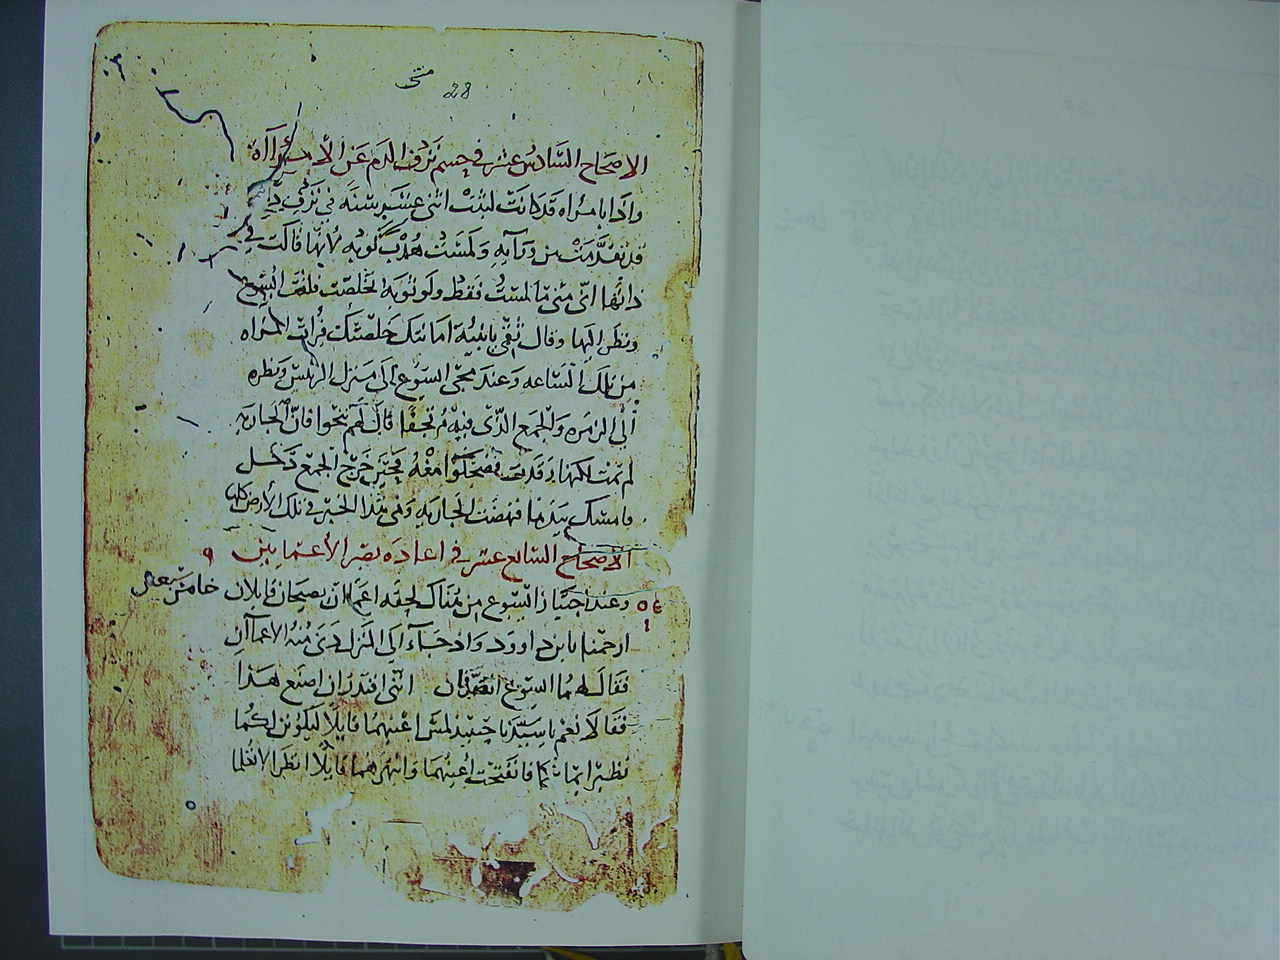 متى
28
الاصحاح السادس عشر في حسم نزف الدم عن الامراآه
واذا بامراه قد كانت لبثت اثنى عشر سنه في نزف دم
قد تقدمت من ورآيه ولمست هدب ثوبه لانها قالت في
ذاتها انى متى ما لمست فقط ولو ثوبه تخلصت فلتفت اليسوع
ونظر اليها وقال ثقي يا ابنيه امانتك خلصتك فبرات المراه
من تلك الساعه وعند مجى اليسوع الى منزل الريس ونظره
الى الزمره والجمع الذى فيه مرتجفا قال لهم تنحوا فان الجاريه
لم تمت لكنها رقدت فضحكوا منه فحين خرج الجمع دخل
وامسك بيدها فنهضت الجاريه ونمى هذا الخبر في تلك الأرض كلها
الاصحاح السابع عشر في اعادة بصر الأعمايين ٩
وعند اجتياز اليسوع من هناك لحقه اعمآن يصيحان قايلان خامس
ارحمنا يا بن داوود واذ جآء الى المنزل دنى منه الاعمآن
فقال لهما اليسوع اتصدقان انني اقتدر ان اصنع هذا
فقالا نعم يا سيد يا حينيذ لمس اعينهما قايلا ليكون لكما
نظير ايمانكما فانفتحت اعينهما وانتهرهما قايلا انظرا لا تعلما